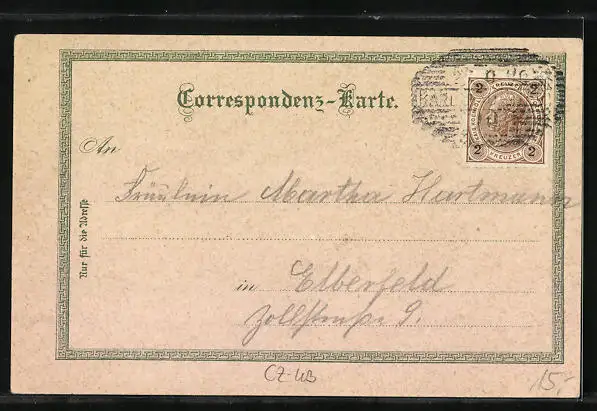 Correspondenz-Karte.
2 2
KREUZER
2 2
An
Fräulein Martha Hartmann
Nur für die Adresse
in Elberfeld
Zollstraße 9.
CZ-WB
15,-